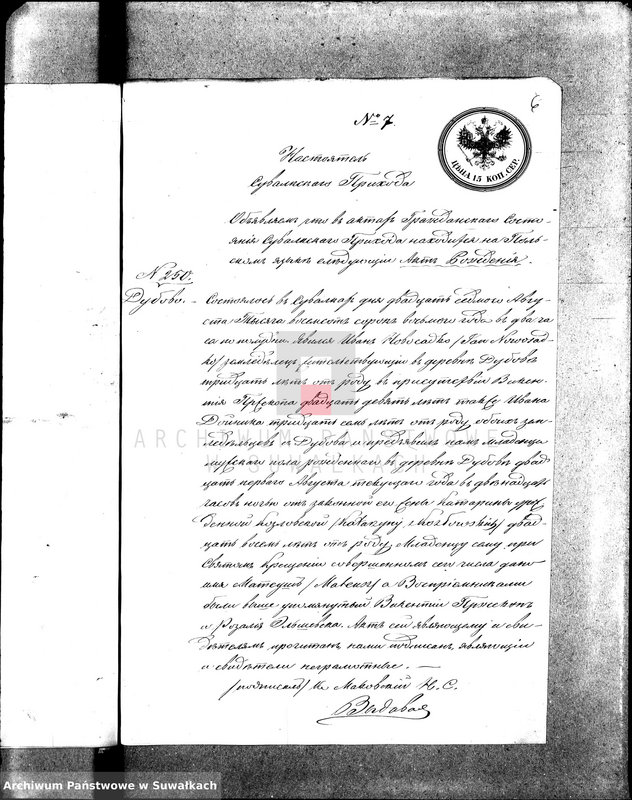 6
№ 7.
ЦѢНА 15 КОП. СЕР.
Настоятель
Сувалкскаго Прихода
Объявляемъ что въ актахъ Гражданскаго Состо-
янія Сувалкскаго Прихода находится на Поль-
скомъ языкѣ слѣдующій Актъ Рожденія.
№ 250.
Дубово. –
Состоялось въ Сувалкахъ дня двадцать седьмого Авгу-
ста Тысяча восемсотъ сорокъ восьмого года въ два ча-
са по полудни. Явился Иванъ Новосадко /Jan Nowosad-
ko/ земледѣлец жительствующій въ деревнѣ Дубовѣ
тридцать лѣтъ отъ роду, въ присутствіи Викен-
тія двадцать девять лѣтъ также Ивана
тридцать семь лѣтъ отъ роду обоихъ зем-
ледѣльцовъ изъ Дубова и предъявилъ намъ младенца
мужскаго пола рожденнаго въ деревнѣ Дубовѣ двад-
цать перваго Августа текущаго года въ двѣнадцать
часовъ ночью отъ законной его жены Катарины урож-
денной Козловской /Katarzyny z Kozłowskich/ двад-
цать восемь лѣтъ отъ роду. Младенцу сему при
Святомъ Крещеніи совершенномъ сего числа дано
имя Матеушъ /Mateusz/ а Воспріемниками
были выше упомянутый Викентій
и Розалія Актъ сей являющему и сви-
дѣтелямъ прочитанъ нами подписанъ, являющій
и свидѣтели неграмотные. —
/подписалъ/ К. Маковскій Н. С.
ARCHIWUM PAŃSTWOWE
W SUWAŁKACH
Archiwum Państwowe w Suwałkach